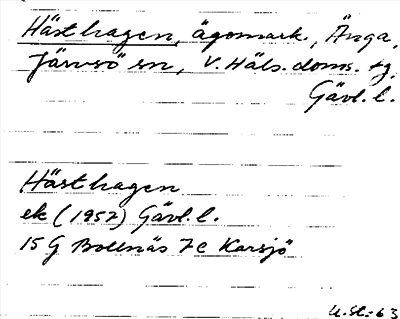 Hästhagen, ägomark., Änga,
Järvsö sn, V. Häls. doms. tg.
Gävl. l.
Hästhagen
ek (1957) Gävl. l.
15 G Bollnäs 7c Karsjö
U.Sl.-63